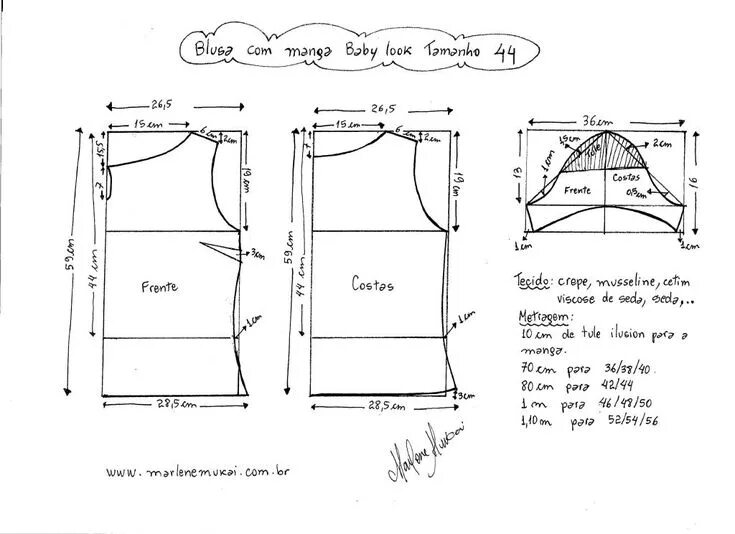 Blusa com manga Baby look Tamanho 44
26,5
15 cm
6 cm
2 cm
15,5
7
19 cm
59 cm
44 cm
3 cm
Frente
1 cm
28,5 cm
26,5
15 cm
6 cm
2 cm
7
19 cm
59 cm
44 cm
Costas
1 cm
3 cm
28,5 cm
36 cm
1,5 cm
Tule
2 cm
1 cm
13
16
Costas
Frente
0,5 cm
1 cm
1 cm
Tecido: crepe, musseline, cetim
viscose de seda, seda,..
Metragem:
10 cm de tule ilusion para a
manga.
70 cm para 36/38/40.
80 cm para 42/44
1 m para 46/48/50
1,10 m para 52/54/56
Marlene Mukai
www.marlenemukai.com.br